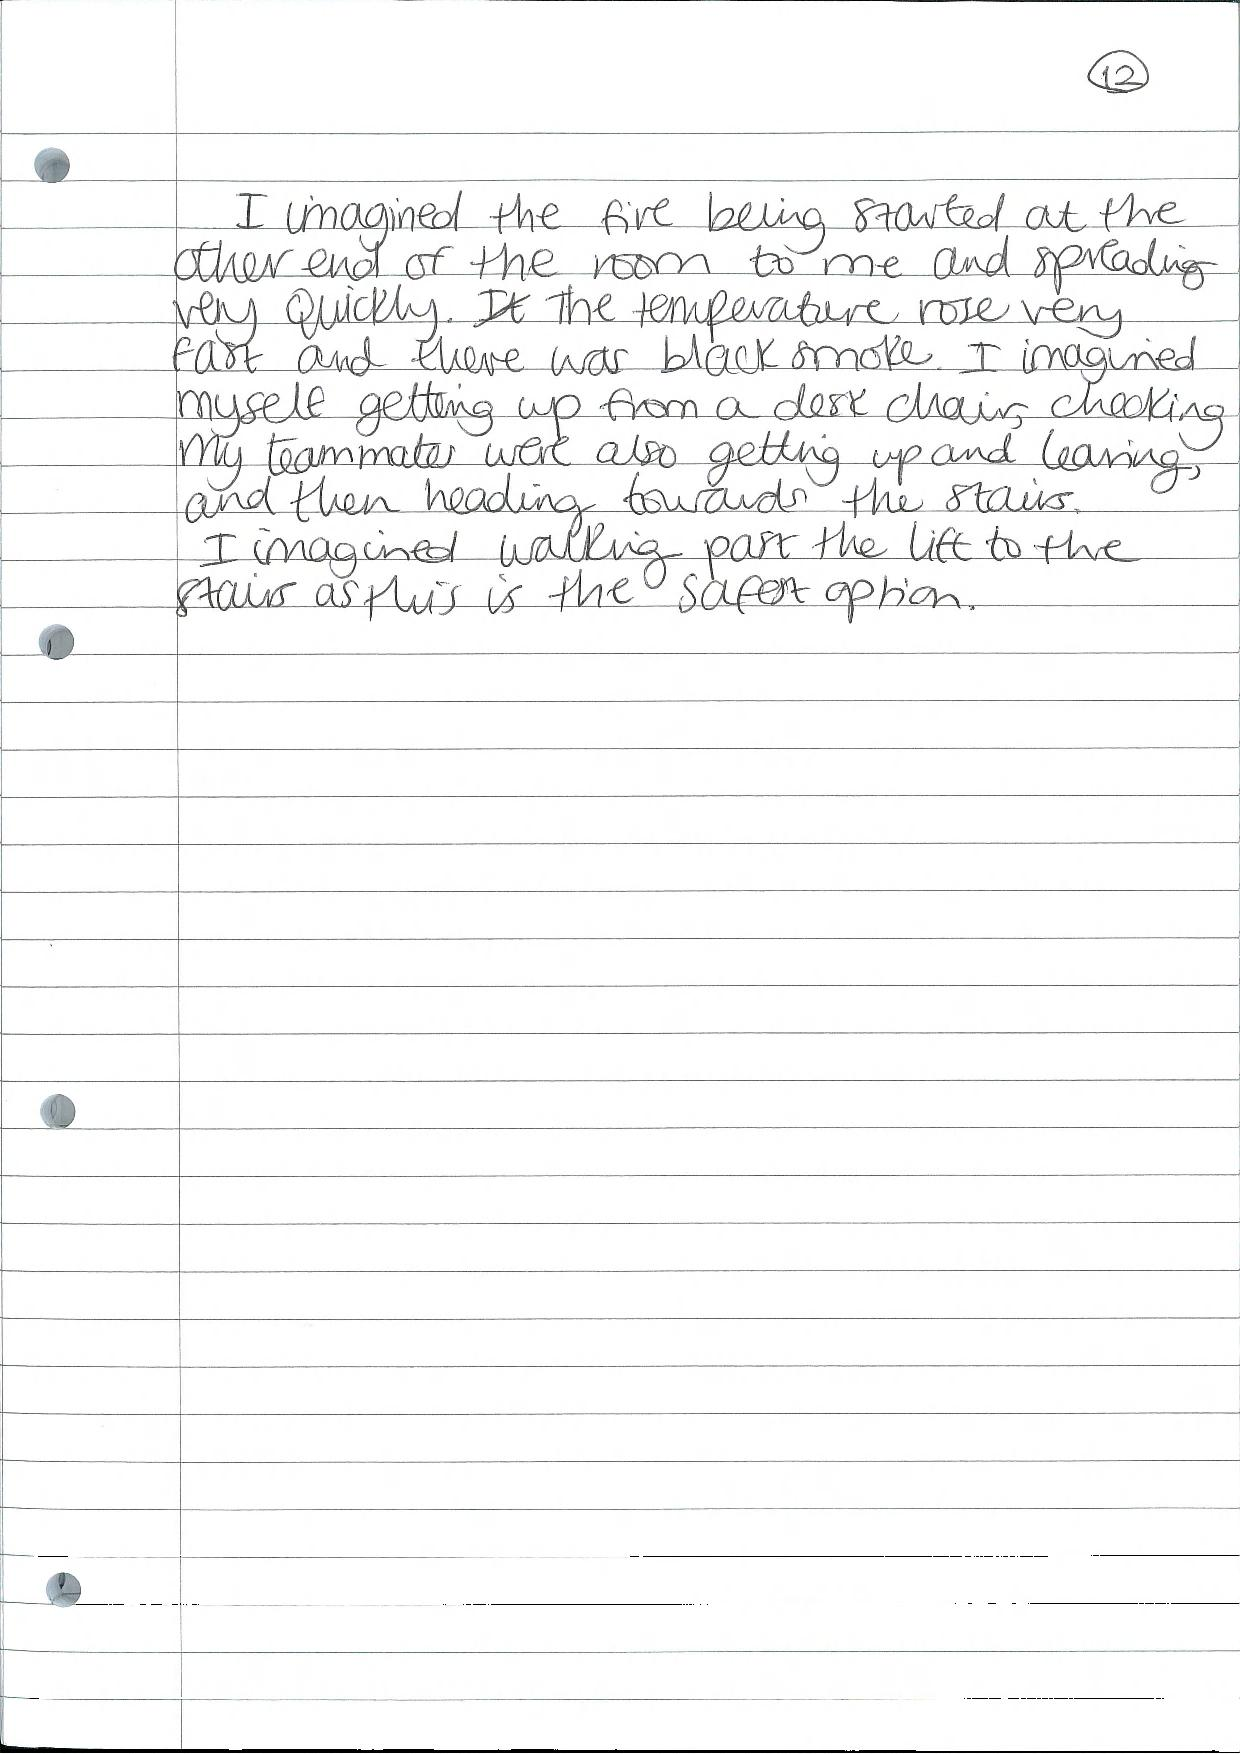 12
I imagined the fire being started at the
other end of the room to me and spreading
very quickly. It The temperature rose very
fast and there was black smoke. I imagined
myself getting up from a desk chair, checking
my teammates were also getting up and leaving,
and then heading towards the stairs.
I imagined walking past the lift to the
stairs as this is the safest option.